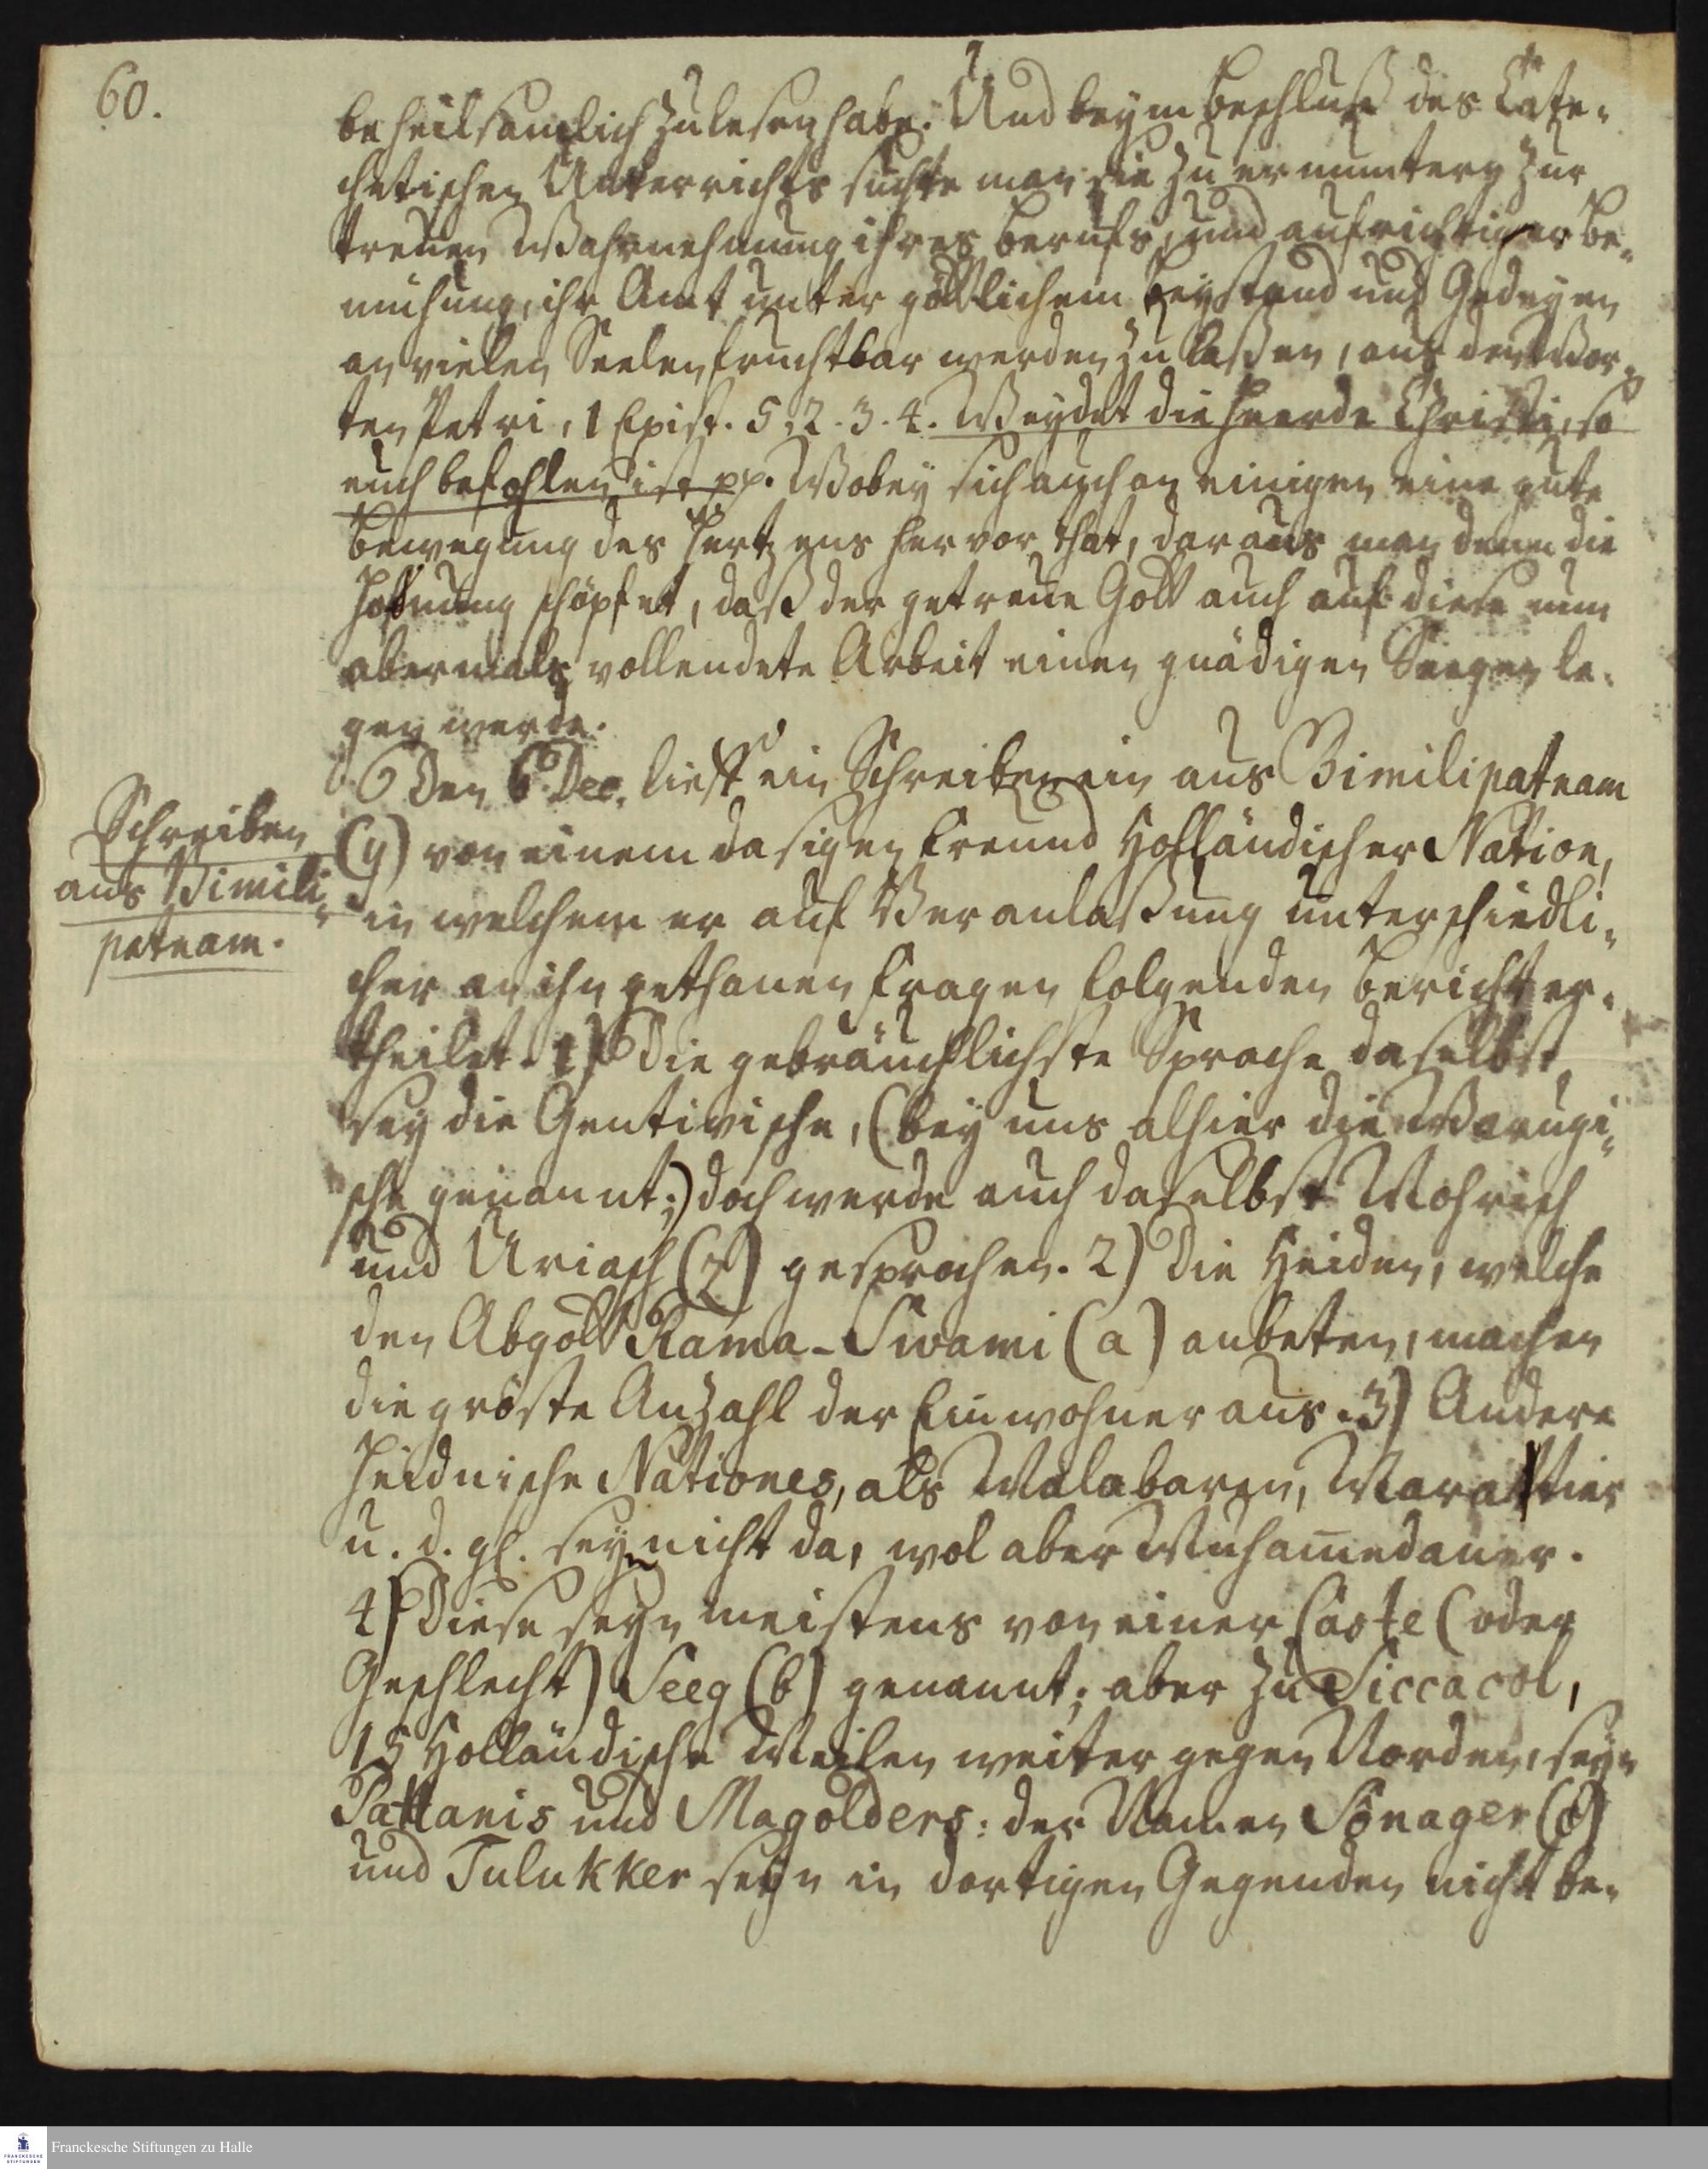 60.
be heilsamlich zu lesen habe. Und beym Beschluß des Cate-
chetischen Unterrichts suchte man sie zu ermuntern zur
treuen Wahrnehmung ihres Berufs, und aufrichtiger Be-
mühung, ihr Amt unter göttlichem Beystand und Gedeyen
an vielen Seelen fruchtbar werden zu laßen, aus den Wor-
ten Petri, 1 Epist. 5, 2. 3. 4. Weydet die Heerde Christi, so
euch befohlen ist pp. Wobey sich auch an einigen eine gute
Bewegung des Hertzens hervor that, daraus man denn die
Hoffnung schöpfet, daß der getreue Gott auch auf diese nun
abermals vollendete Arbeit einen gnädigen Seegen le-
gen werde.
Den 6 Dec. lieff ein Schreiben ein aus Bimilipatnam
Schreiben
aus Bimili-
patnam.
(y) von einem dasigen Freund Holländischer Nation,
in welchem er auf Veranlaßung unterschiedli-
cher an ihn gethanen Fragen folgenden Bericht er-
theilet. 1) Die gebräuchlichste Sprache daselbst
sey die Gentivische, (bey uns alhier die Warugi-
sche genannt;) doch werde auch daselbst Mohrisch
und Uriasch (z) gesprochen. 2) Die Heiden, welche
den Abgott Rama-Swami (a) anbeten, machen
die gröste Anzahl der Einwohner aus. 3) Andere
Heidnische Nationes, als Malabaren, Marattier
u. d. gl. seyn nicht da, wol aber Muhamedaner.
4) Diese seyn meistens von einer Caste (oder
Geschlecht) Seeg (b) genannt; aber zu Siccacol,
15 Holländische Meilen weiter gegen Norden, seyn
Pattanis und Magolders: der Namen Sonager (c)
und Tulukker seyn in dortigen Gegenden nicht be-
Franckesche Stiftungen zu Halle